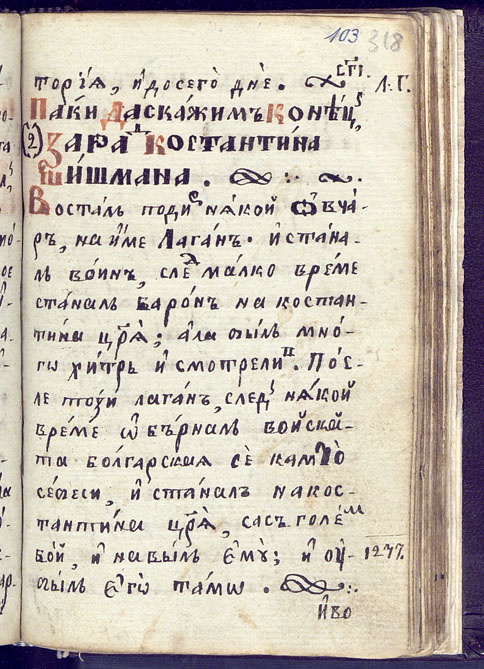 103 318
торїѧ, и҆ до сего̀ днѐ. стї.
Л. Г.
Па́ки да скажимъ коне́цъ
(2) За́ра Костанти́на
Ши́шмана.
Воста́лъ подиⷭ҇ нѧ́кой ѡ҆вча́-
ръ, на и҆́ме Лага́нъ. и҆ ста́на-
лъ во́инъ, слеⷣ ма́лко вре́ме
ста́налъ баро́нъ на костан-
ти́на цр҃ѧ̀; а҆ла бы́лъ мно́-
гѡ хи́тръ и҆ смотрели́в. По́с-
ле то́ѵзи лага́нъ, следъ нѧ́кой
вре́ме ѡ҆бъ́рналъ войска́-
та болгарскиѧ сѐ камто̀
себеси, и҆ ста́налъ на кос-
тантина цр҃ѧ̀, съсъ голе́м
бой, и҆ на́былъ є҆мꙋ̀; и҆ оу҆-
бы́лъ є҆го̀ та́мѡ.
1277.
и҆́во